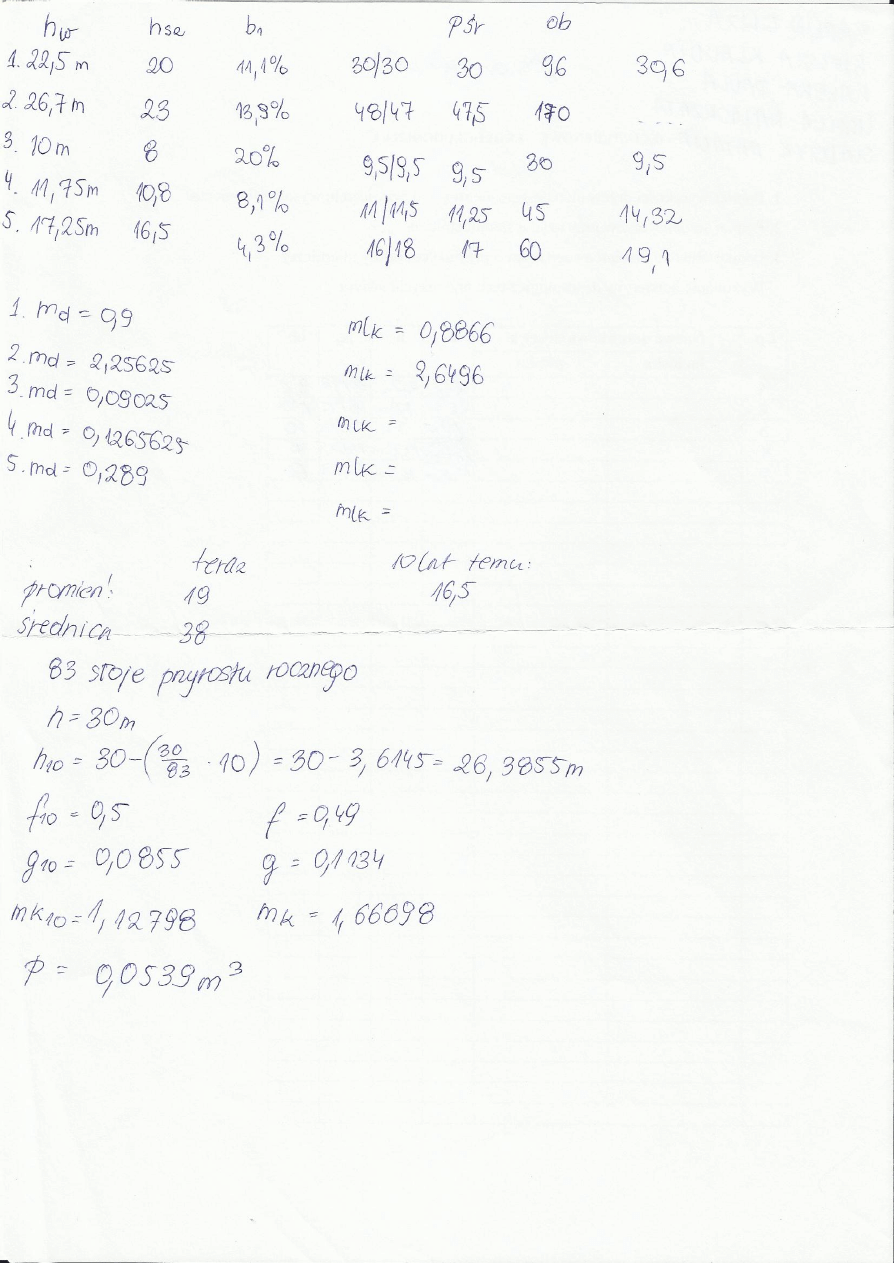 hw hse b1 pśr ob
1. 22,5 m 20 11,1% 30/30 30 96 30,6
2. 26,7 m 23 13,9% 48/47 47,5 170 ....
3. 10 m 8 20% 9,5/9,5 9,5 30 9,5
4. 11,75 m 10,8 8,1% 11/11,5 11,25 45 14,32
5. 17,25 m 16,5 4,3% 16/18 17 60 19,1
1. md = 0,9 mlk = 0,8866
2. md = 2,25625 mlk = 2,6496
3. md = 0,09025 mlk =
4. md = 0,1265625 mlk =
5. md = 0,289 mlk =
teraz 10 lat temu:
promień: 19 16,5
średnica 38
83 słoje przyrostu rocznego
h = 30 m
h10 = 30 - (30/83 · 10) = 30 - 3,6145 = 26,3855 m
f10 = 0,5 f = 0,49
g10 = 0,0855 g = 0,1134
mk10 = 1,12798 mk = 1,66698
p = 0,0539 m³